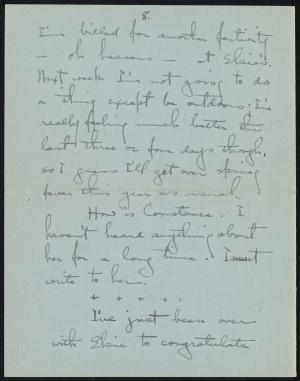 8.
I'm billed for another festivity
— oh heavens — at Elsie's.
Next week I'm not going to do
a thing except be outdoors. I'm
really feeling much better the
last three or four days though,
so I guess I'll get over spring
fever this year as usual.
How is Constance. I
haven't heard anything about
her for a long time. I must
write to her.
+ + + + +
I've just been over
with Elsie to congratulate